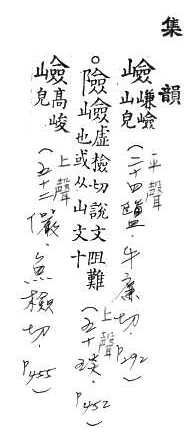 集韻
嶮嵰嶮山皃(二十四鹽．牛廉切．P292)
平聲
○險嶮虛檢切說文阻難也或从山文十(五十琰．P452)
上聲
嶮高峻皃(五十二儼．魚檢切．P455)
上聲